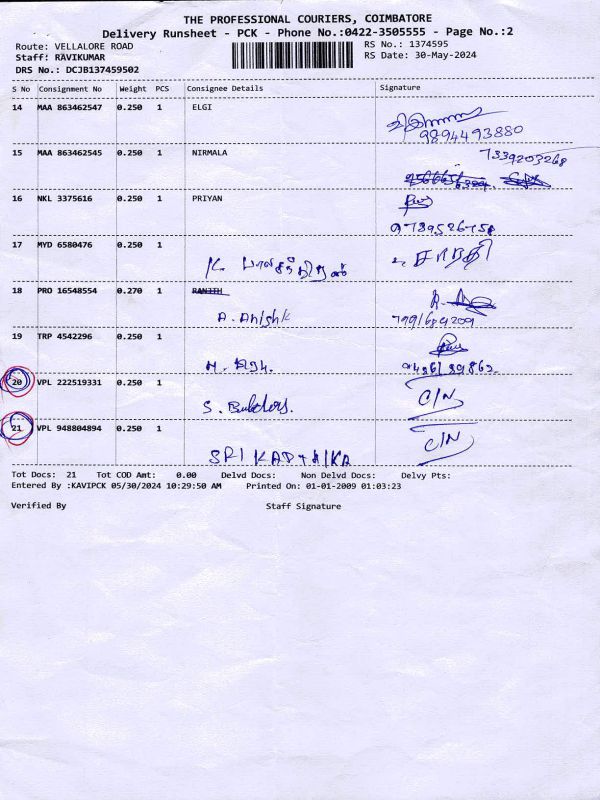 THE PROFESSIONAL COURIERS, COIMBATORE
Delivery Runsheet - PCK - Phone No.:0422-3505555 - Page No.:2
Route: VELLALORE ROAD
RS No.: 1374595
Staff: RAVIKUMAR
RS Date: 30-May-2024
DRS No.: DCJB137459502
S No Consignment No Weight PCS Consignee Details Signature
14 MAA 863462547 0.250 1 ELGI
9894493880
15 MAA 863462545 0.250 1 NIRMALA 7339203268
16 NKL 3375616 0.250 1 PRIYAN
9789526758
17 MYD 6580476 0.250 1
K. சாந்தி
18 PRO 16548554 0.270 1 RANJITH
A. Anishk
7991684209
19 TRP 4542296 0.250 1
20 VPL 222519331 0.250 1 C/N
S.
21 VPL 948804894 0.250 1 C/N
SRI KARTHIKA
Tot Docs: 21 Tot COD Amt: 0.00 Delvd Docs: Non Delvd Docs: Delvy Pts:
Entered By :KAVIPCK 05/30/2024 10:29:50 AM Printed On: 01-01-2009 01:03:23
Verified By Staff Signature